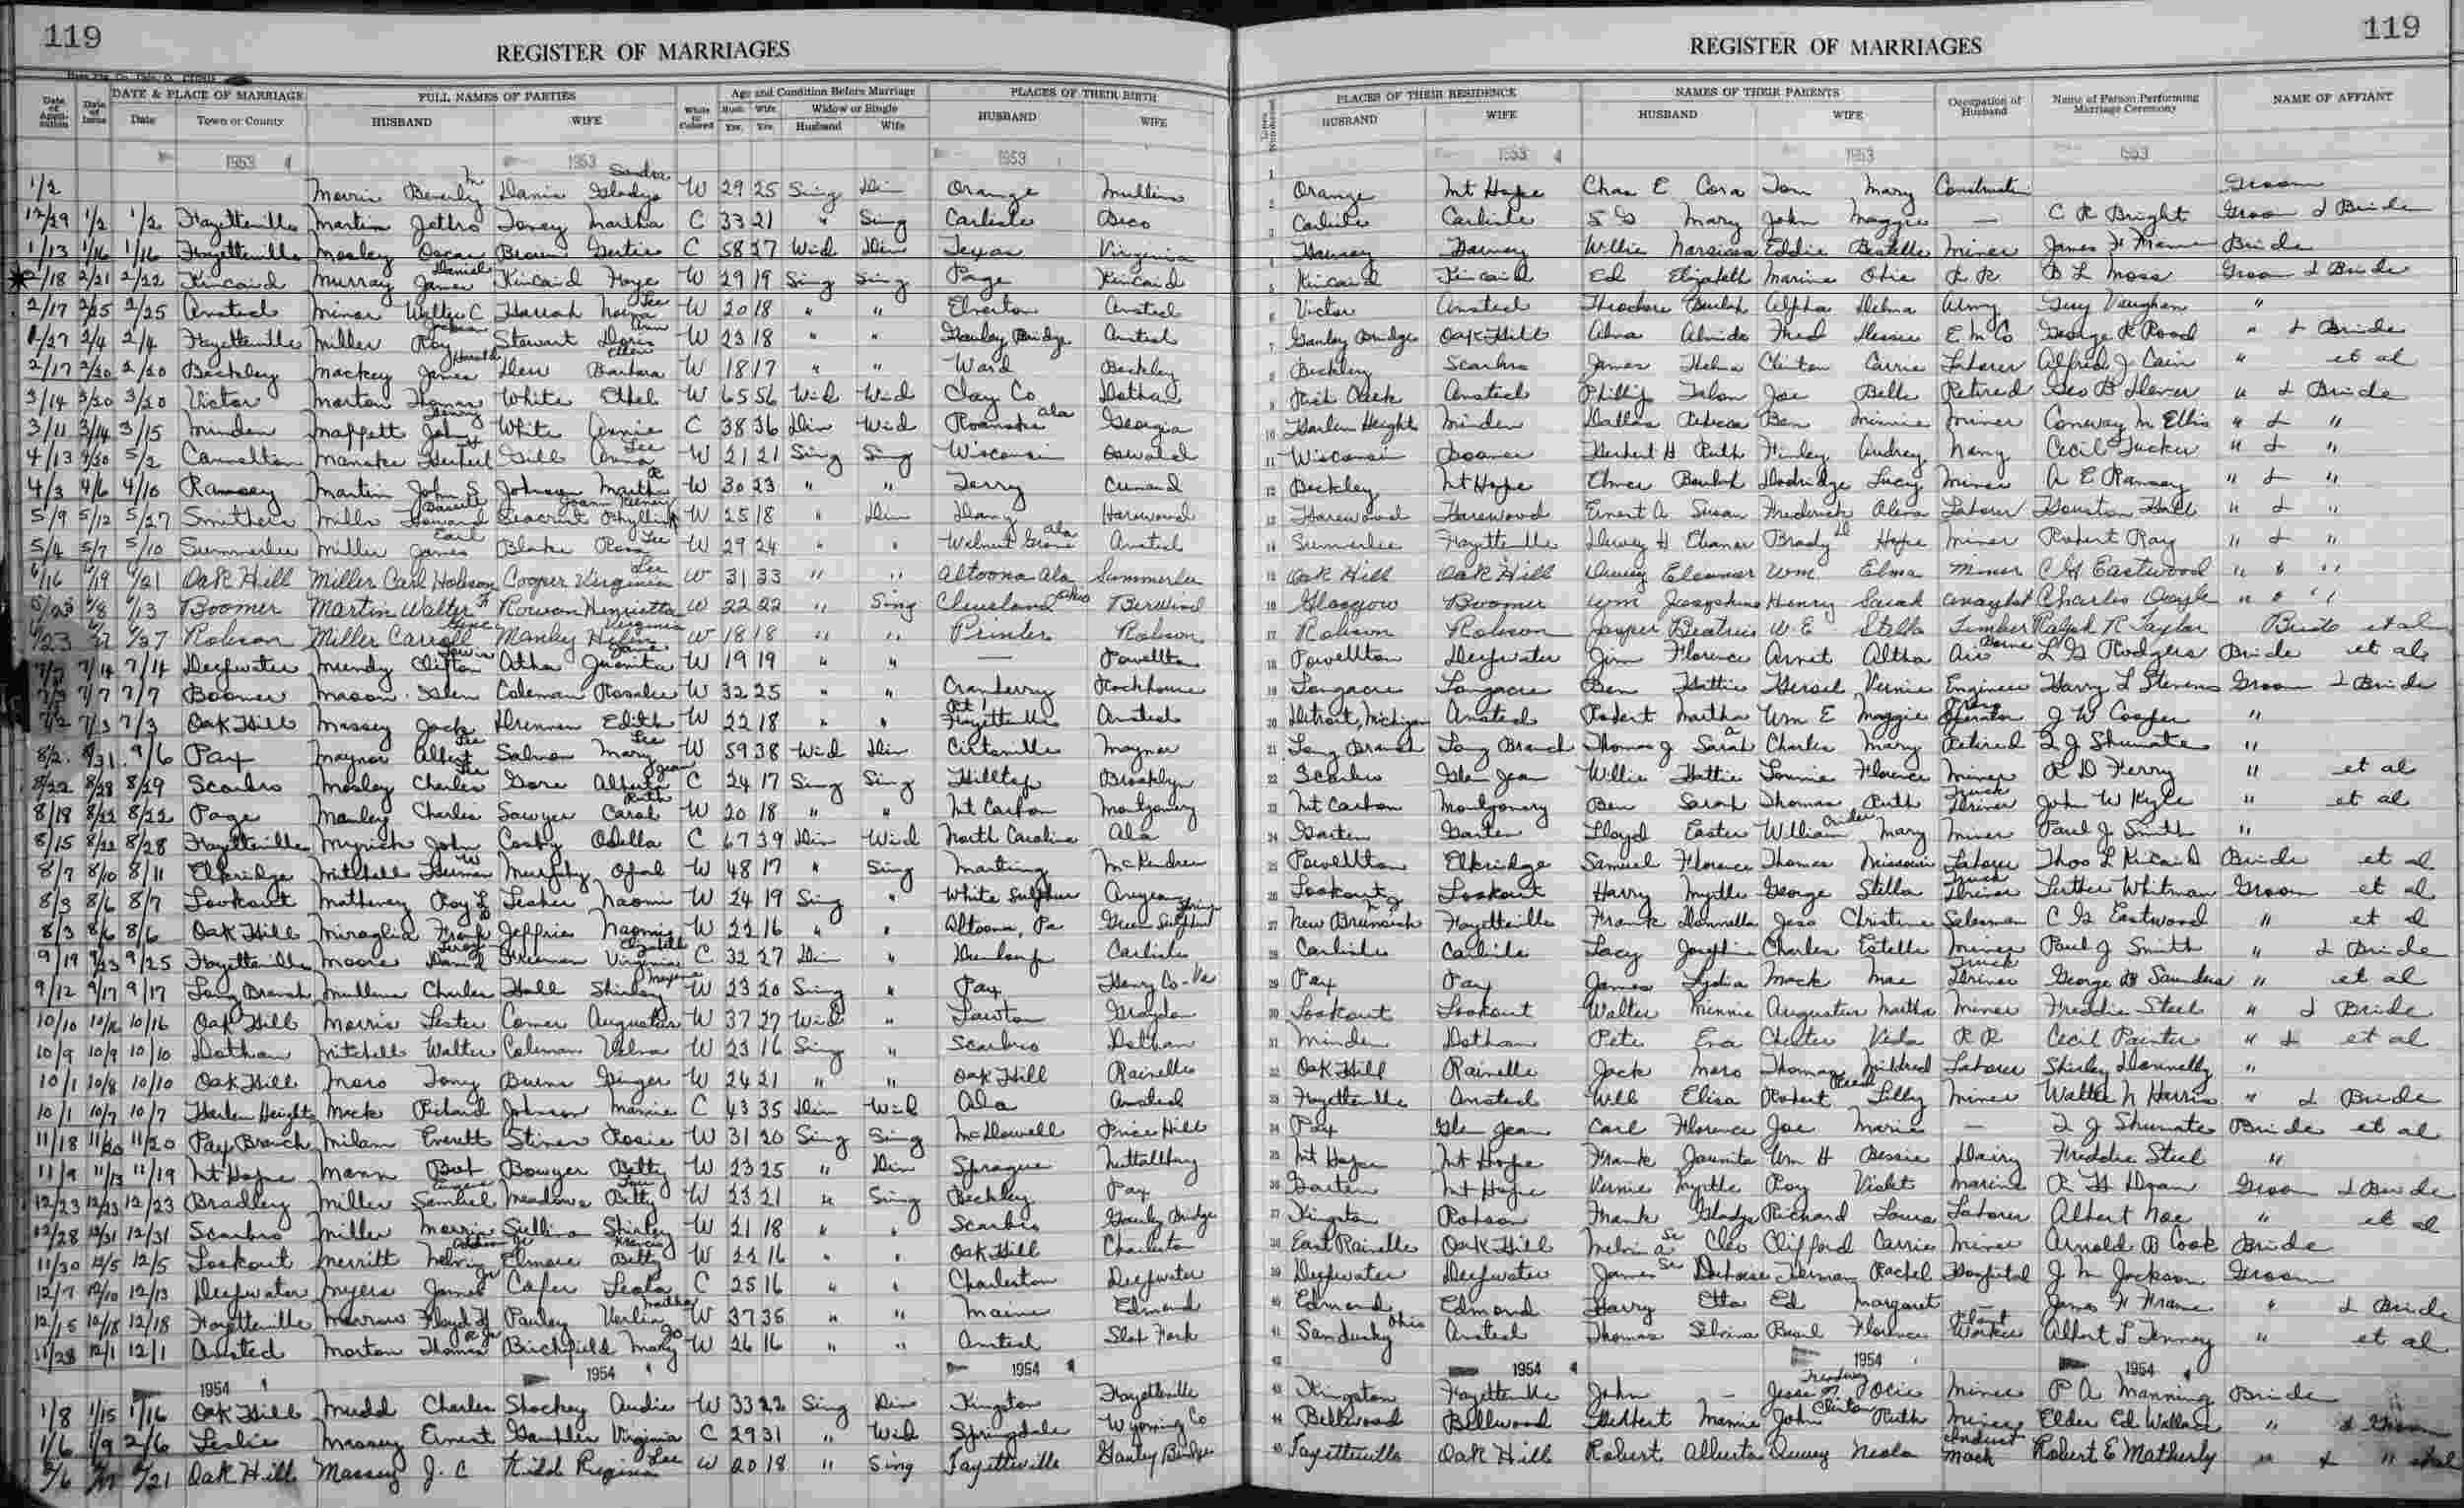 119
REGISTER OF MARRIAGES
REGISTER OF MARRIAGES
119
Date of Application Date of Issue DATE & PLACE OF MARRIAGE FULL NAMES OF PARTIES White or Colored Age and Condition Before Marriage PLACES OF THEIR BIRTH PLACES OF THEIR RESIDENCE NAMES OF THEIR PARENTS Occupation of Husband Name of Person Performing Marriage Ceremony NAME OF AFFIANT
Date Town or County HUSBAND WIFE Husb. Yrs. Wife Yrs. Widow or Single Husband Wife HUSBAND WIFE HUSBAND WIFE HUSBAND WIFE
1953 1953 1953 1953 1953 1953
1/2 Morris Beverly M Davis Gladys Sandra W 29 25 Sing Div Orange Mullins Orange Mt Hope Chas E Cora Tom Mary Construction Groom
12/29 1/2 1/2 Fayetteville Martin Jethro Toney Martha C 33 21 " Sing Carlisle Beco Carlisle Carlisle S G Mary John Maggie — C R Bright Groom & Bride
1/13 1/16 1/16 Fayetteville Mosley Oscar Brown Gertie C 58 27 Wid Div Texas Virginia Harvey Harvey Willie Narcissa Eddie Estelle Miner James H Frame Bride
2/18 2/21 2/22 Kincaid Murray James Daniel Kincaid Faye W 29 19 Sing Sing Page Kincaid Kincaid Kincaid Ed Elizabeth Marina Ohie R R B L Moss Groom & Bride
2/17 2/25 2/25 Ansted Minor Walter C Harrah Norma Lee W 20 18 " " Elverton Ansted Victor Ansted Theodore Beulah Alpha Delma Army Guy Vaughan "
1/27 2/4 2/4 Fayetteville Miller Roy Jackson Stewart Doris Ann W 23 18 " " Gauley Bridge Ansted Gauley Bridge Oak Hill Alva Fred Dessie E M Co George R Rood " & Bride
2/17 2/20 2/20 Beckley Mackey James Harold Dew Barbara Ellen W 18 17 " " Ward Beckley Beckley Scarbro James Thelma Clinton Carrie Laborer Alfred J Cain " et al
3/14 3/20 3/20 Victor Morton Thomas White Ethel W 65 56 Wid Wid Clay Co Dothan Rich Creek Ansted Phillip Joe Belle Retired Geo B Dever " & Bride
3/11 3/14 3/15 Minden Moffett John Henry White Annie C 38 36 Div Wid Roanoke Ala Georgia Harlem Height Minden Dallas Rebecca Ben Minnie Miner Conway M Ellis " & "
4/13 4/20 5/2 Cannelton Manske Herbert H Gill Anna Lee W 21 21 Sing Sing Wisconsin Oswald Wisconsin Boomer Herbert H Ruth Finley Audrey Navy Cecil Tucker " & "
4/3 4/6 4/10 Ramsey Martin John S Johnson Martha R W 30 23 " " Terry Cunard Beckley Mt Hope Elmer Beulah Dodridge Lucy Miner A E Ramsey " & "
5/9 5/12 5/27 Smithers Mills Howard Seacrist Phyllis W 25 18 " Div Harewood Harewood Harewood Ernest A Susan Frederick Alena Laborer Houston Hall " & "
5/4 5/7 5/10 Summerlee Miller James Earl Blake Rosa Lee W 29 24 " " Walnut Grove Ala Ansted Summerlee Fayetteville Dewey H Eleanor Brady Hope Miner Robert Ray " & "
6/16 6/19 6/21 Oak Hill Miller Carl Hobson Cooper Virginia Lee W 31 33 " " Altoona Ala Summerlee Oak Hill Oak Hill Dewey Eleanor Wm. Elma Miner C G Eastwood " & "
6/8 6/13 Boomer Martin Walter F Rowan Henrietta W 22 22 " Sing Cleveland Ohio Berwind Glasgow Boomer Wm Josephine Henry Sarah Charles Quigle " & "
6/23 6/27 Robson Miller Carroll Gene Manley Helen Virginia W 18 18 " " Printer Robson Robson Robson Jasper Beatrice W E Stella Timber Ralph R Taylor Bride et al
7/14 7/14 Deepwater Mundy Clifton Atha Juanita Jane W 19 19 " " — Powellton Powellton Deepwater Jim Florence Arnet Altha Air Borne L G Rodgers Bride et al
7/3 7/7 7/7 Boomer Mason Salem Coleman Rosalee W 32 25 " " Cranberry Rockhouse Longacre Longacre Ben Hattie Hersel Vernie Engineer Harry L Stevens Groom & Bride
7/2 7/3 7/3 Oak Hill Massey Jack Drennen Edith W 22 18 " " Rt 1 Fayetteville Ansted Detroit, Michigan Ansted Robert Martha Wm E Maggie Operator J W Cooper "
8/2. 8/31 9/6 Pax Maynor Albert Lee Salmon Mary Lee W 59 38 Wid Div Cirtsville Maynor Long Branch Long Branch Thomas J Sarah Charles Mary Retired T J Shumate "
8/22 8/28 8/29 Scarbro Mosley Charles Lee Gore Alberta Jean C 24 17 Sing Sing Hilltop Brooklyn Scarbro Glen Jean Willie Hattie Lonnie Florence Miner R D Ferry " et al
8/18 8/22 8/22 Page Manley Charles Sawyer Carol Ruth W 20 18 " " Mt Carbon Montgomery Mt Carbon Montgomery Ben Sarah Thomas Ruth Truck Driver John W Kyle " et al
8/15 8/22 8/28 Fayetteville Myrick John Cosby Odella C 67 39 Div Wid North Carolina Ala Garten Garten Lloyd Easter William Mary Miner Paul J Smith "
8/7 8/10 8/11 Elkridge Mitchell Herman W Murphy Opal W 48 17 " Sing Marting McKendree Powellton Elkridge Samuel Florence Thomas Missouri Laborer Thos L Kincaid Bride et al
8/3 8/6 8/7 Lookout Matheney Roy L Lesher Naomi W 24 19 Sing " White Sulphur Lookout Lookout Harry Myrtle George Stella Truck Driver Luther Whitman Groom et al
8/3 8/6 8/6 Oak Hill Miraglia Frank Jeffries Naomi W 22 16 " " Altoona, Pa Green Sulphur Spring New Brunswick N J Fayetteville Frank Donnella Jess Christine Salesman C G Eastwood " et al
9/19 9/23 9/25 Fayetteville Moore David Leroy Freeman Virginia Elizabeth C 32 27 Div " Dunloup Carlisle Carlisle Carlisle Lacy Josephine Charles Estelle Miner Paul J Smith " & Bride
9/12 9/17 9/17 Long Branch Mullens Charles Hall Shirley Maxine W 23 20 Sing " Pax Henry Co-Va Pax Pax James Lydia Mack Mae Truck Driver George B Saunders " et al
10/10 10/16 10/16 Oak Hill Morris Lester Comer Augustus W 37 27 Wid " Lawton Graydon Lookout Lookout Walter Minnie Augustus Martha Miner Freddie Steel " & Bride
10/9 10/9 10/10 Dothan Mitchell Walter Coleman Velma W 23 16 Sing " Scarbro Dothan Minden Dothan Pete Eva Chester Vida R R Cecil Painter " & et al
10/1 10/8 10/10 Oak Hill Moro Tony Burns Ginger W 24 21 " " Oak Hill Rainelle Oak Hill Rainelle Jack Moro Thomas Mildred Laborer Shirley Donnelly "
10/1 10/7 10/7 Harlem Heights Mack Richard Johnson Mamie C 43 35 Div Wid Ala Ansted Fayetteville Ansted Will Eliza Robert Lilly Miner Walter N Harris " & Bride
11/18 11/20 11/20 Pax Branch Milam Everett Stiner Rosie W 31 20 Sing Sing McDowell Price Hill Pax Glen Jean Carl Florence Joe Marie — T J Shumate Bride et al
11/9 11/13 11/19 Mt Hope Mann Bert Bowyer Betty W 23 25 " Div Sprague Nuttallburg Mt Hope Mt Hope Frank Jaunita Wm H Bessie Dairy Freddie Steel "
12/23 12/23 12/23 Bradley Miller Samuel Eugene Meadows Betty Lou W 23 21 " Sing Beckley Pax Garten Mt Hope Vernie Myrtle Roy Violet Marine R H Dean Groom & Bride
12/28 12/31 12/31 Scarbro Miller Morris Sullivan Shirley W 21 18 " " Scarbro Gauley Bridge Kingston Robson Frank Gladys Richard Laura Laborer Albert Noe " et al
11/30 12/5 12/5 Lookout Merritt Melvin Jr Elmore Betty Francis W 22 16 " " Oak Hill Charleston East Rainelle Oak Hill Melvin A Sr Cleo Clifford Carrie Miner Arnold B Cook Bride
12/7 12/10 12/13 Deepwater Myers James Jr Caper Leola C 25 16 " " Charleston Deepwater Deepwater Deepwater James Sr Herman Rachel Hospital J M Jackson Groom
12/15 12/18 12/18 Fayetteville Morrow Floyd H Pauley Verlin Martha W 37 35 " " Maine Edmond Edmond Edmond Harry Etta Ed Margaret — James H Frame " & Bride
11/28 12/1 12/1 Ansted Morton Thomas R Jr Birchfield Mary Jo W 26 16 " " Ansted Slab Fork Sandusky Ohio Ansted Thomas Selvina Basil Florence Plant Worker Albert L Tenney " et al
1954 1954 1954 1954 1954 1954
1/8 1/15 1/16 Oak Hill Mudd Charles Shockey Audie W 33 22 Sing Div Kingston Fayetteville Kingston Fayetteville John — Jesse Ocie Miner P A Manning Bride
1/6 1/9 2/6 Leslie Massey Ernest Gambler Virginia C 29 31 " Wid Springdale Wyoming Co Bellwood Bellwood Hebbert Mamie John Clinton Ruth Miner Elder Ed Wallace " & Groom
2/6 2/21 Oak Hill Massey J. C Kidd Regina Lee W 20 18 " Sing Fayetteville Gauley Bridge Fayetteville Oak Hill Robert Alberta Dewey Neola Robert E Matherly " & " et al